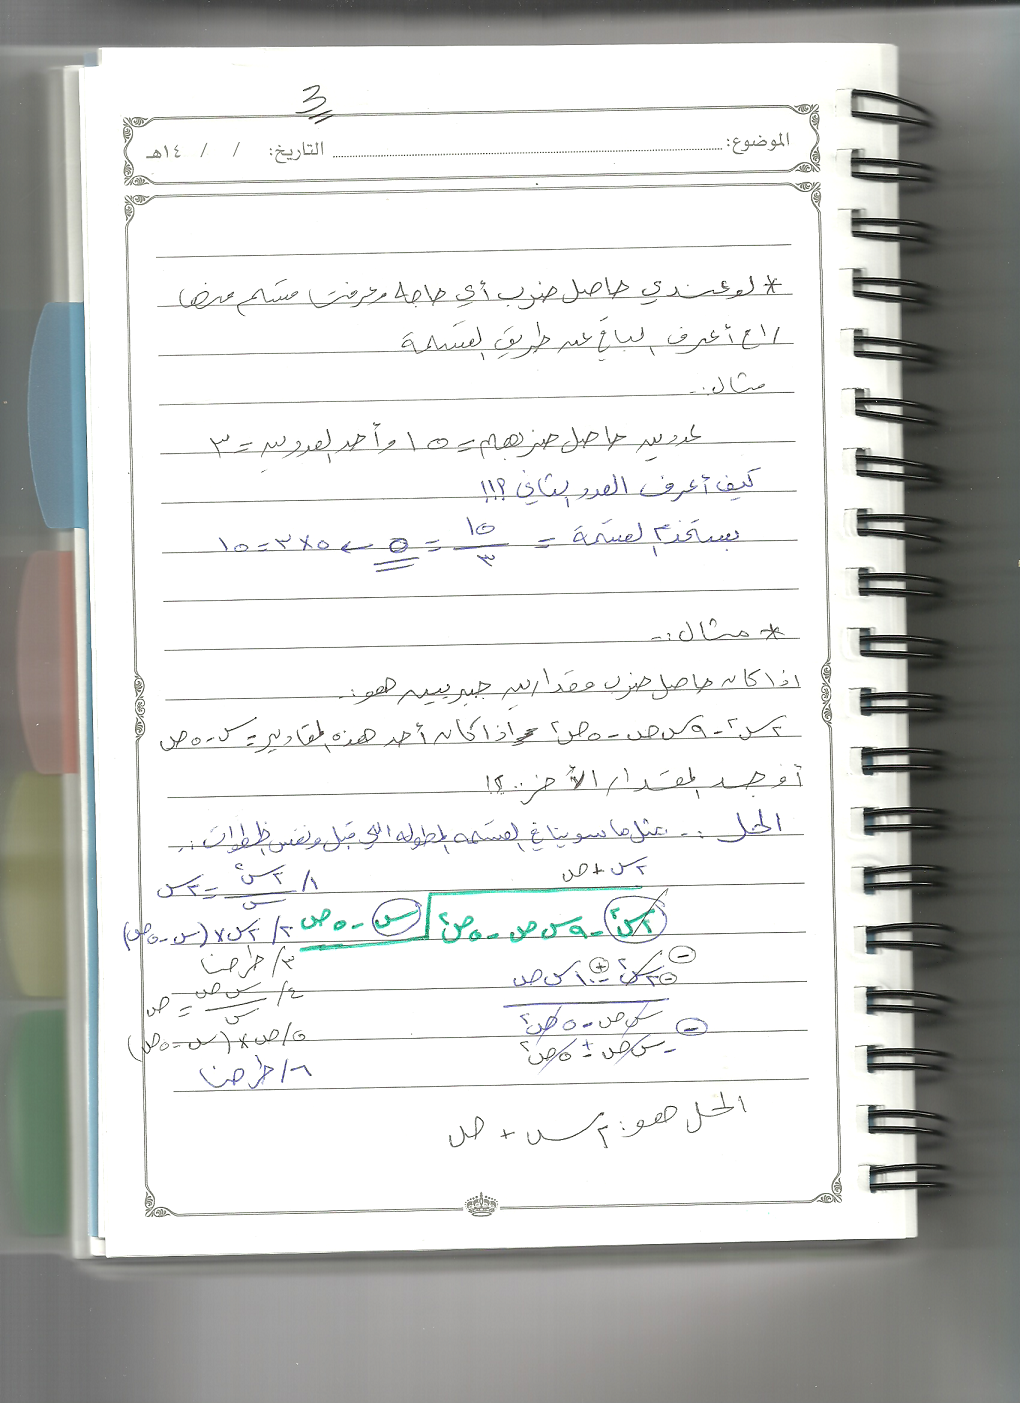 3
الموضوع: التاريخ: / / ١٤هـ
* لو عندي حاصل ضرب أي حاجه وعرفت قسم منها
راح أعرف الباقي عن طريق القسمة
مثال:-
عددين حاصل ضربهم = ١٥ وأحد العددين = ٣
كيف أعرف العدد الثاني ؟!!
بستخدم القسمة = ١٥/٣ = ٥ ← ٥×٣=١٥
* مثال:-
اذا كان حاصل ضرب مقدارين جبريين هو:-
٢س٢ - ٩س ص - ٥ص٢ اذا كان أحد هذه المقادير = س - ٥ص
أوجد المقدار الأخر..؟!
الحل :- مثل ما سوينا في القسمه المطوله اللي قبل ونفس الخطوات :-
٢س + ص
س - ٥ص ٢س٢ - ٩س ص - ٥ص٢
٢س٢ - ١٠س ص
س ص - ٥ص٢
س ص - ٥ص٢
١/ ٢س٢/س = ٢س
٢/ ٢س × (س - ٥ص)
٣/ طرحنا
٤/ س ص/س = ص
٥/ ص × (س - ٥ص)
٦/ طرحنا
الحل هو: ٢س + ص